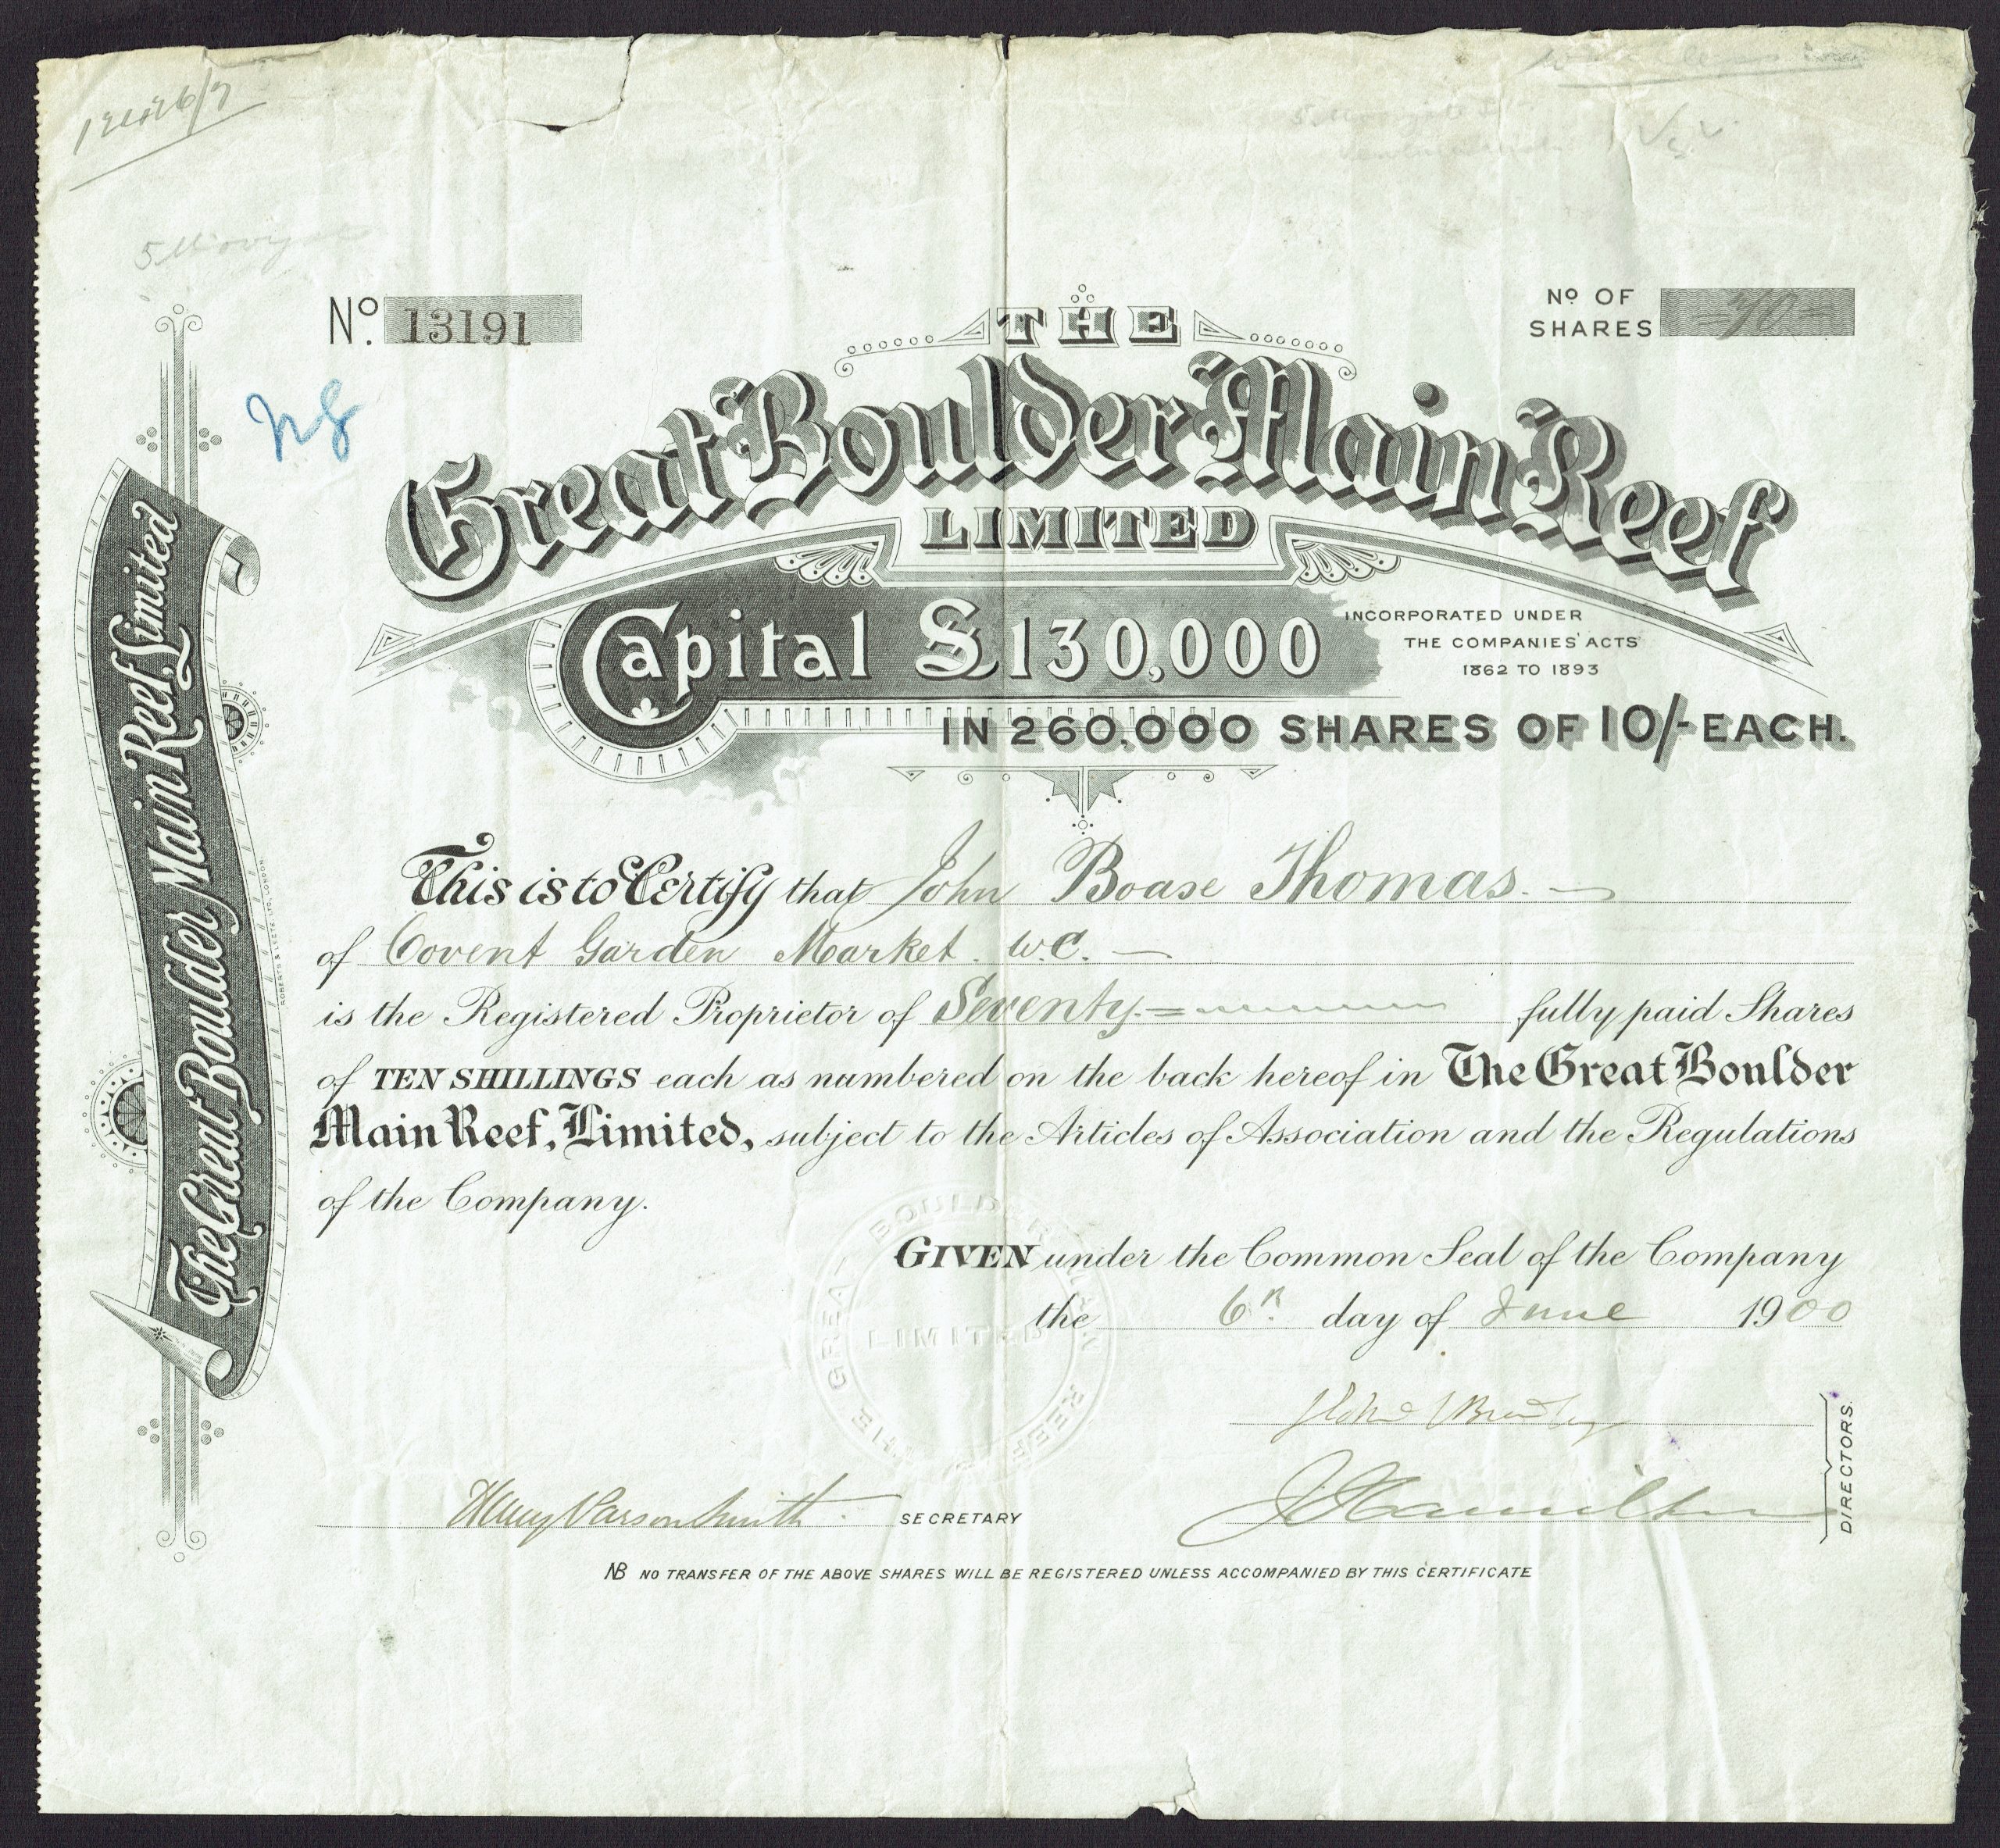 5 Moorgate St
Nº. 13191
Nº OF
SHARES =70=
THE
Great Boulder Main Reef
LIMITED
Capital £130,000
INCORPORATED UNDER
THE COMPANIES' ACTS
1862 TO 1893
IN 260,000 SHARES OF 10/- EACH.
The Great Boulder Main Reef, Limited
ROBERTS & LEETE LTD, LONDON.
This is to Certify that John Boase Thomas.
of Covent Garden Market. W.C.
is the Registered Proprietor of Seventy fully paid Shares
of TEN SHILLINGS each as numbered on the back hereof in The Great Boulder
Main Reef, Limited, subject to the Articles of Association and the Regulations
of the Company.
GIVEN under the Common Seal of the Company
the 6th day of June 1900
THE GREAT BOULDER MAIN REEF
LIMITED
Henry Parson Smith SECRETARY
J Hamilton
DIRECTORS.
NB NO TRANSFER OF THE ABOVE SHARES WILL BE REGISTERED UNLESS ACCOMPANIED BY THIS CERTIFICATE